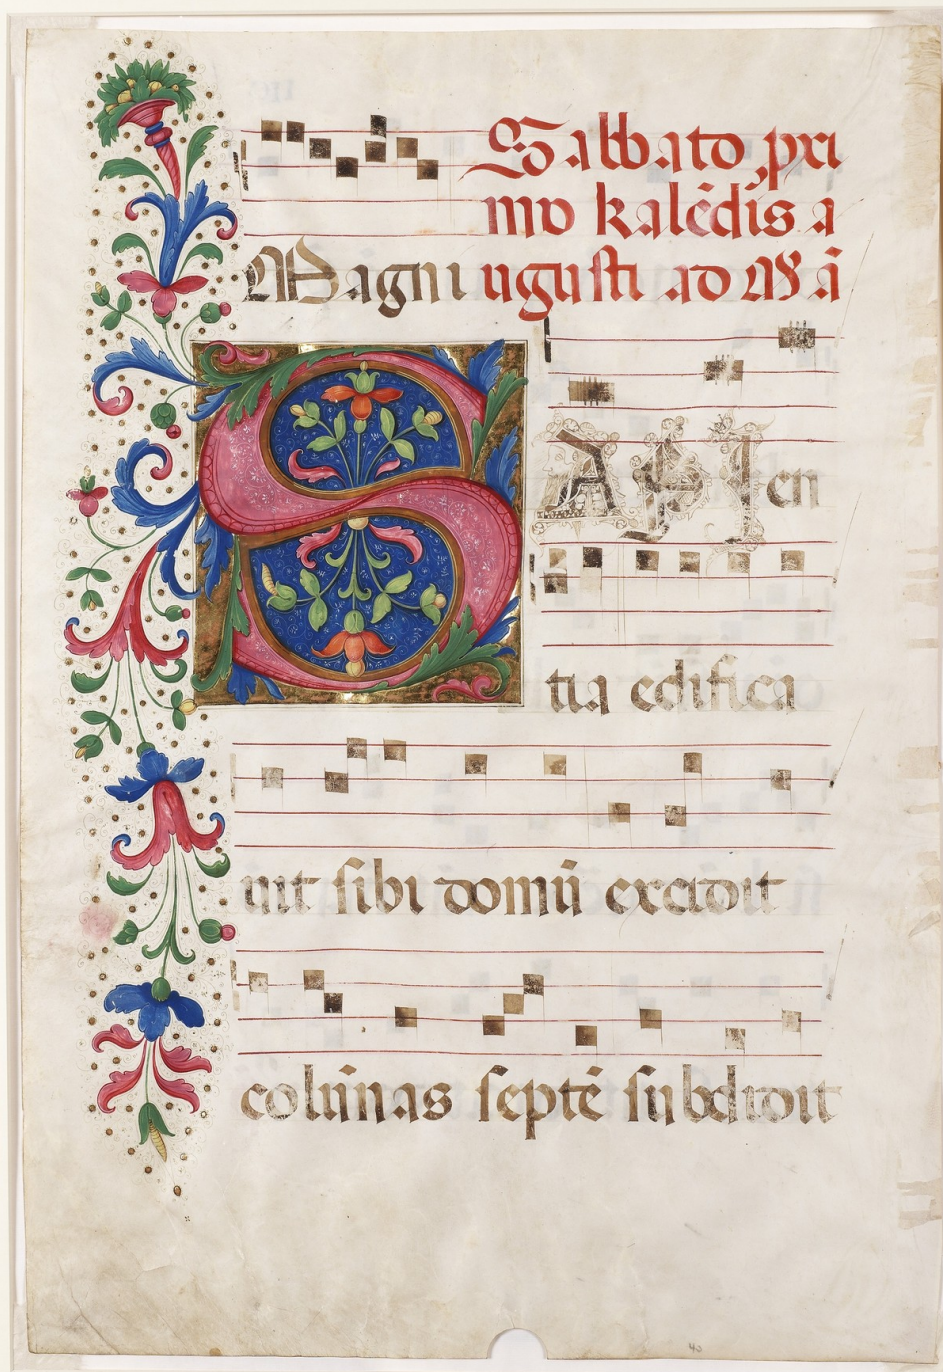 Sabbato pri
mo kalēdis a
Magni ugusti ad Mā
SAPIen
tia edifica
uit sibi domū excidit
colūnas septē subdidit